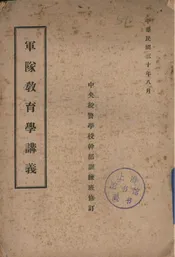 中華民國三十年八月
中央防醫學校幹部訓練班修訂
軍隊教育學講義